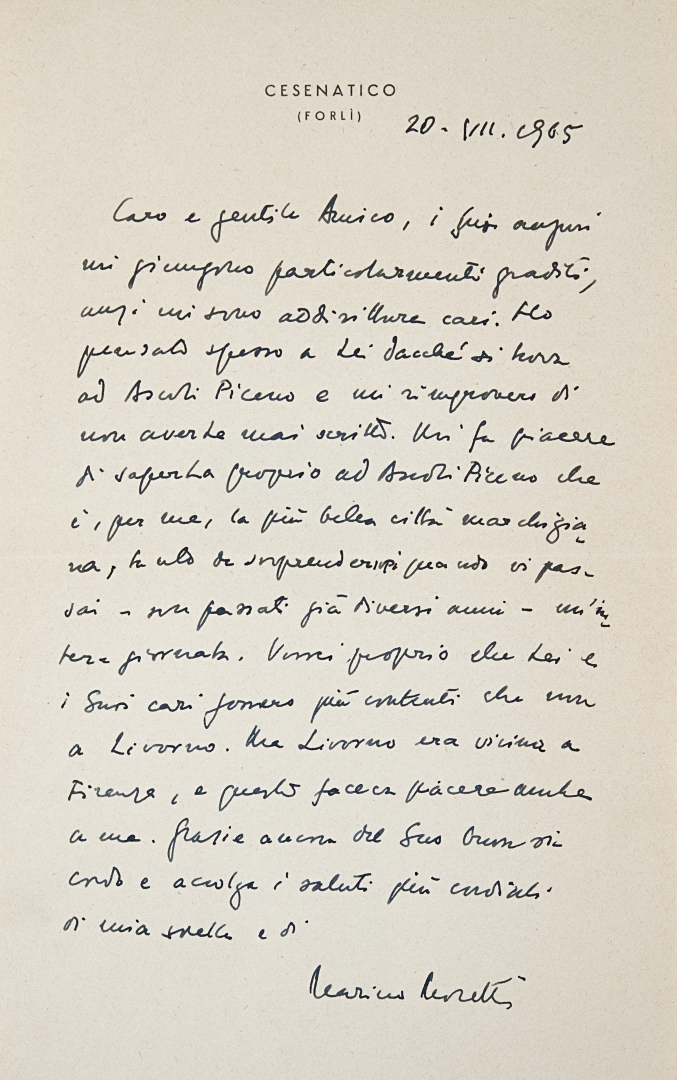 CESENATICO
(FORLÌ)
20 - VII. 1965
Caro e gentile Amico, i Suoi auguri
mi giungono particolarmente graditi,
anzi mi sono addirittura cari. Ho
pensato spesso a Lei dacché si trova
ad Ascoli Piceno e mi rimprovero di
non averLe mai scritto. Mi fa piacere
di saperLa proprio ad Ascoli Piceno che
è, per me, la più bella città marchigia
na, da sorprendermi quando vi pas-
sai - son passati già diversi anni - un'in
tera giornata. Vorrei proprio che Lei e
i Suoi cari fossero più contenti che non
a Livorno. Ma Livorno era vicina a
Firenze, e questo faceva piacere anche
a me. Grazie ancora del Suo buon ri
cordo e accolga i saluti più cordiali
di mia sorella e di
Marino Moretti